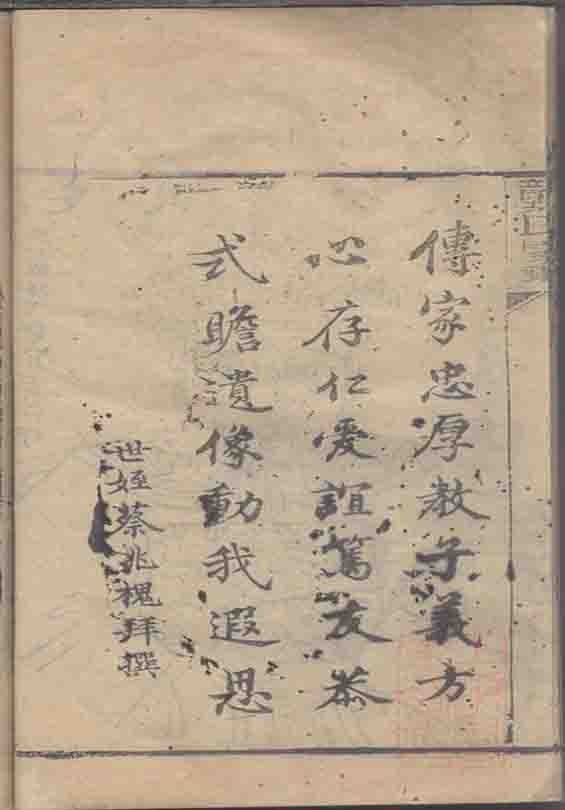 傳家忠厚教子義方
心存仁愛誼篤友恭
式瞻遺像動我遐思
世姪蔡兆槐拜撰